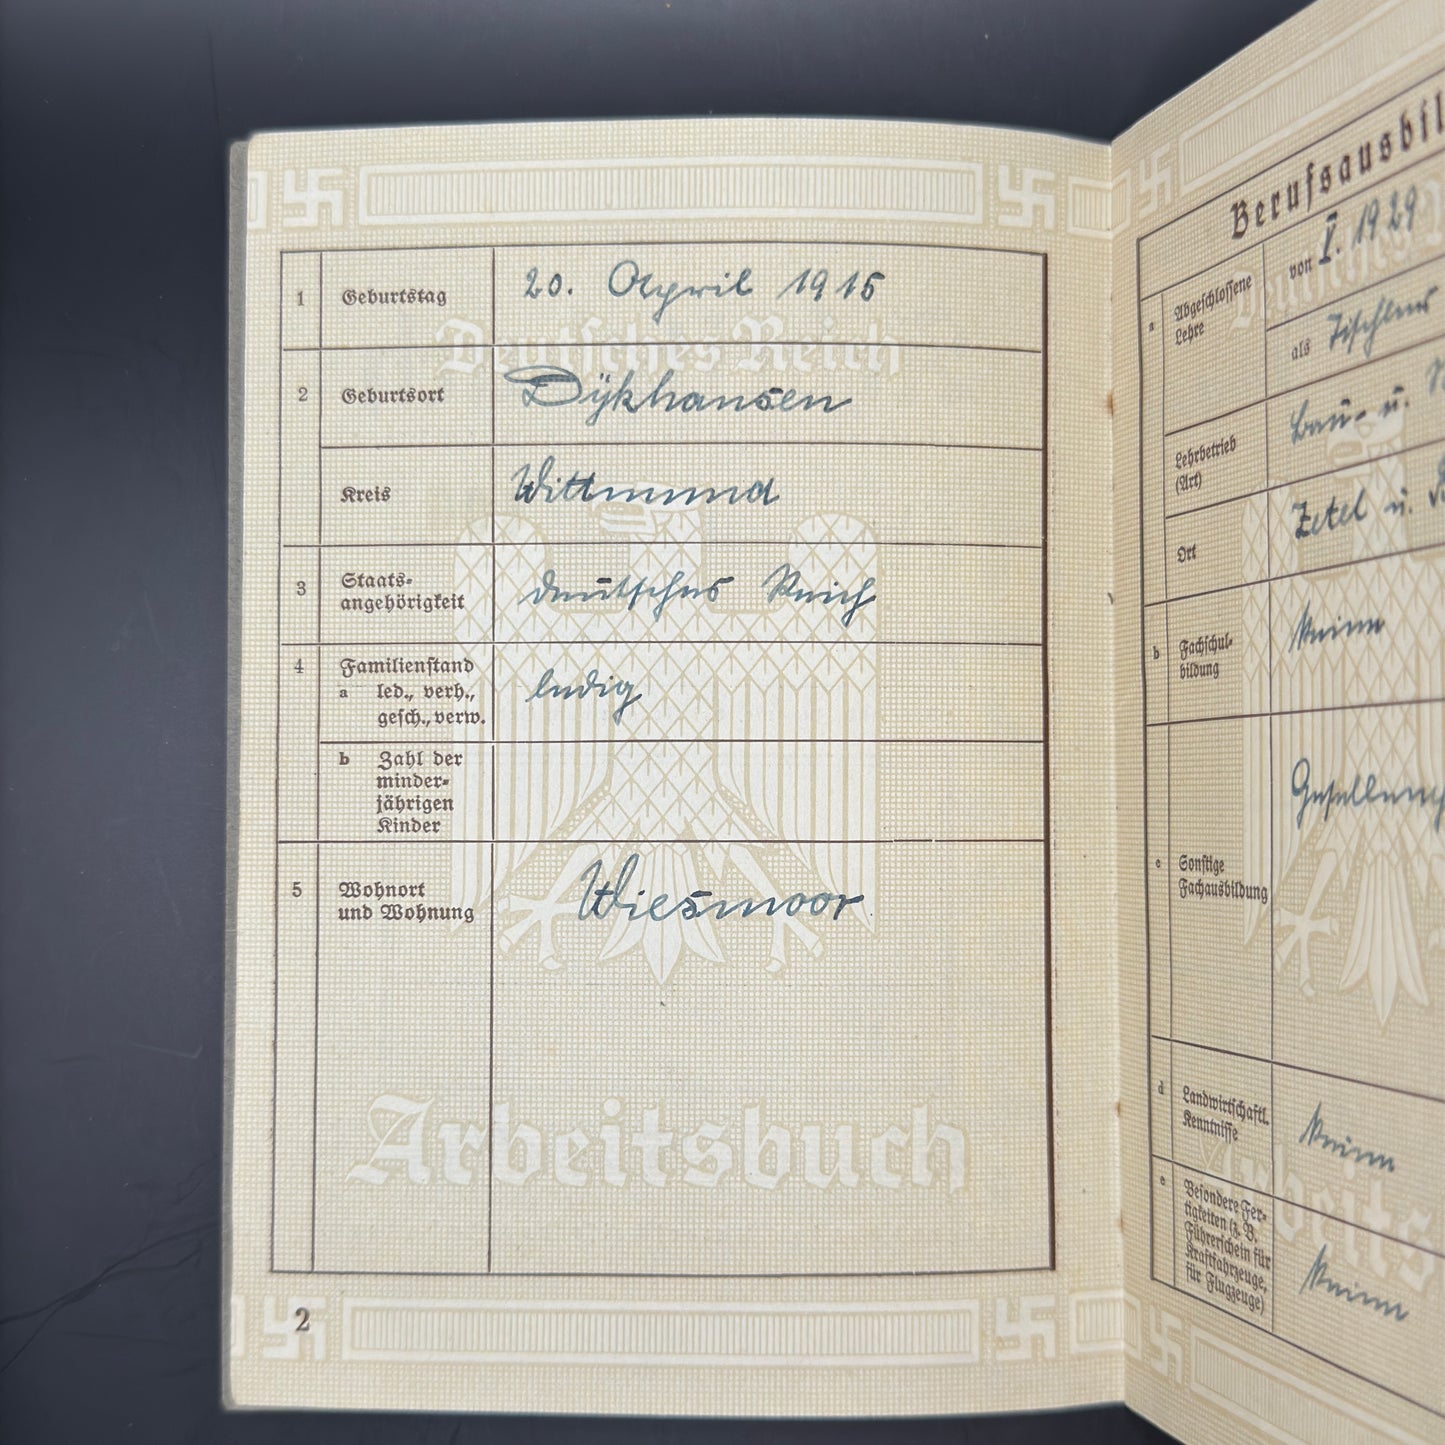 1 Geburtstag 20. April 1915
Deutsches Reich
2 Geburtsort Dykhausen
Kreis Wittmund
3 Staats-
angehörigkeit deutsches Reich
4 Familienstand
a led., verh.,
gesch., verw. ledig
b Zahl der
minder-
jährigen
Kinder
5 Wohnort
und Wohnung Wiesmoor
Arbeitsbuch
2
Berufsausbil
a Abgeschlossene
Lehre von V. 1929
als Tischler
Lehrbetrieb
(Art) Bau- u.
Ort Zetel u.
b Fachschul-
bildung Keine
c Sonstige
Fachausbildung
d Landwirtschaftl.
Kenntnisse Keine
e Besondere Fer-
tigkeiten (z. B.
Führerschein für
Kraftfahrzeuge,
für Flugzeuge) Keine